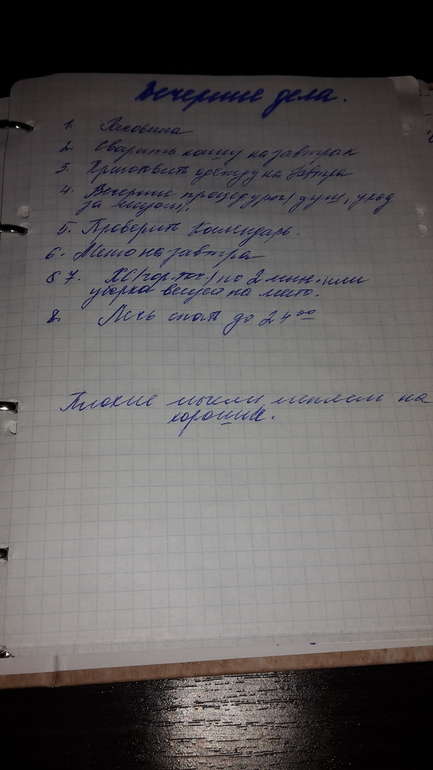 Вечерние дела.
1. Раковина
2. Сварить кашу на завтрак
3. Приготовить одежду на завтра
4. Вечерние процедуры (душ, уход
за лицом).
5. Проверить Календарь.
6. Меню на завтра
7. ХС (гор. точ.) по 2 мин. или
уборка вещей на место.
8. Лечь спать до 24 00
Плохие мысли меняем на
хорошие.